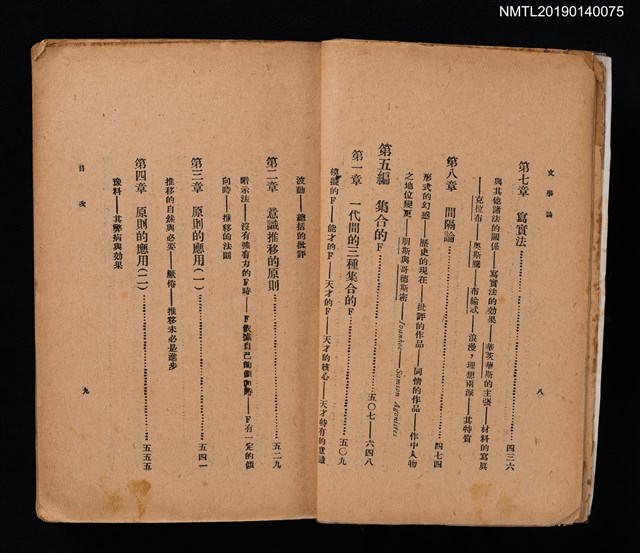 NMTL20190140075
文學論
第七章 寫實法……四三六
與其他諸法的關係——寫實法的效果——華茨華斯的主張——材料的寫實
——克拉布——奧斯騰——布綸忒——浪漫，理想兩派——其特質
第八章 間隔論……四七四
形式的幻惑——歷史的現在——批評的作品——同情的作品——作中人物
之地位變更——朋斯與哥德斯密——Ivanhoe——Samson Agonistes
第五編 集合的F……五〇七——六四八
第一章 一代間的三種集合的F……五〇九
模擬的F——能才的F——天才的F——天才的核心——天才特有的意識
八
波動——總括的批評
第二章 意識推移的原則……五二九
暗示法——沒有強有力的F時——F依據自己的傾向時——F有一定的傾
向時——推移的法則
第三章 原則的應用（一）……五四一
推移的自然與必要——厭倦——推移未必是進步
第四章 原則的應用（二）……五五五
豫料——其弊病與效果
目次
九